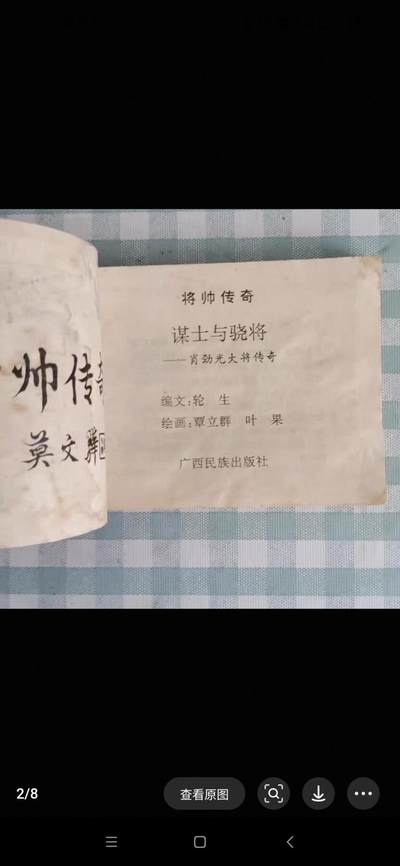 帅传奇
莫文骅
将帅传奇
谋士与骁将
——肖劲光大将传奇
编文:轮 生
绘画:覃立群 叶 果
广西民族出版社
2/8
查看原图